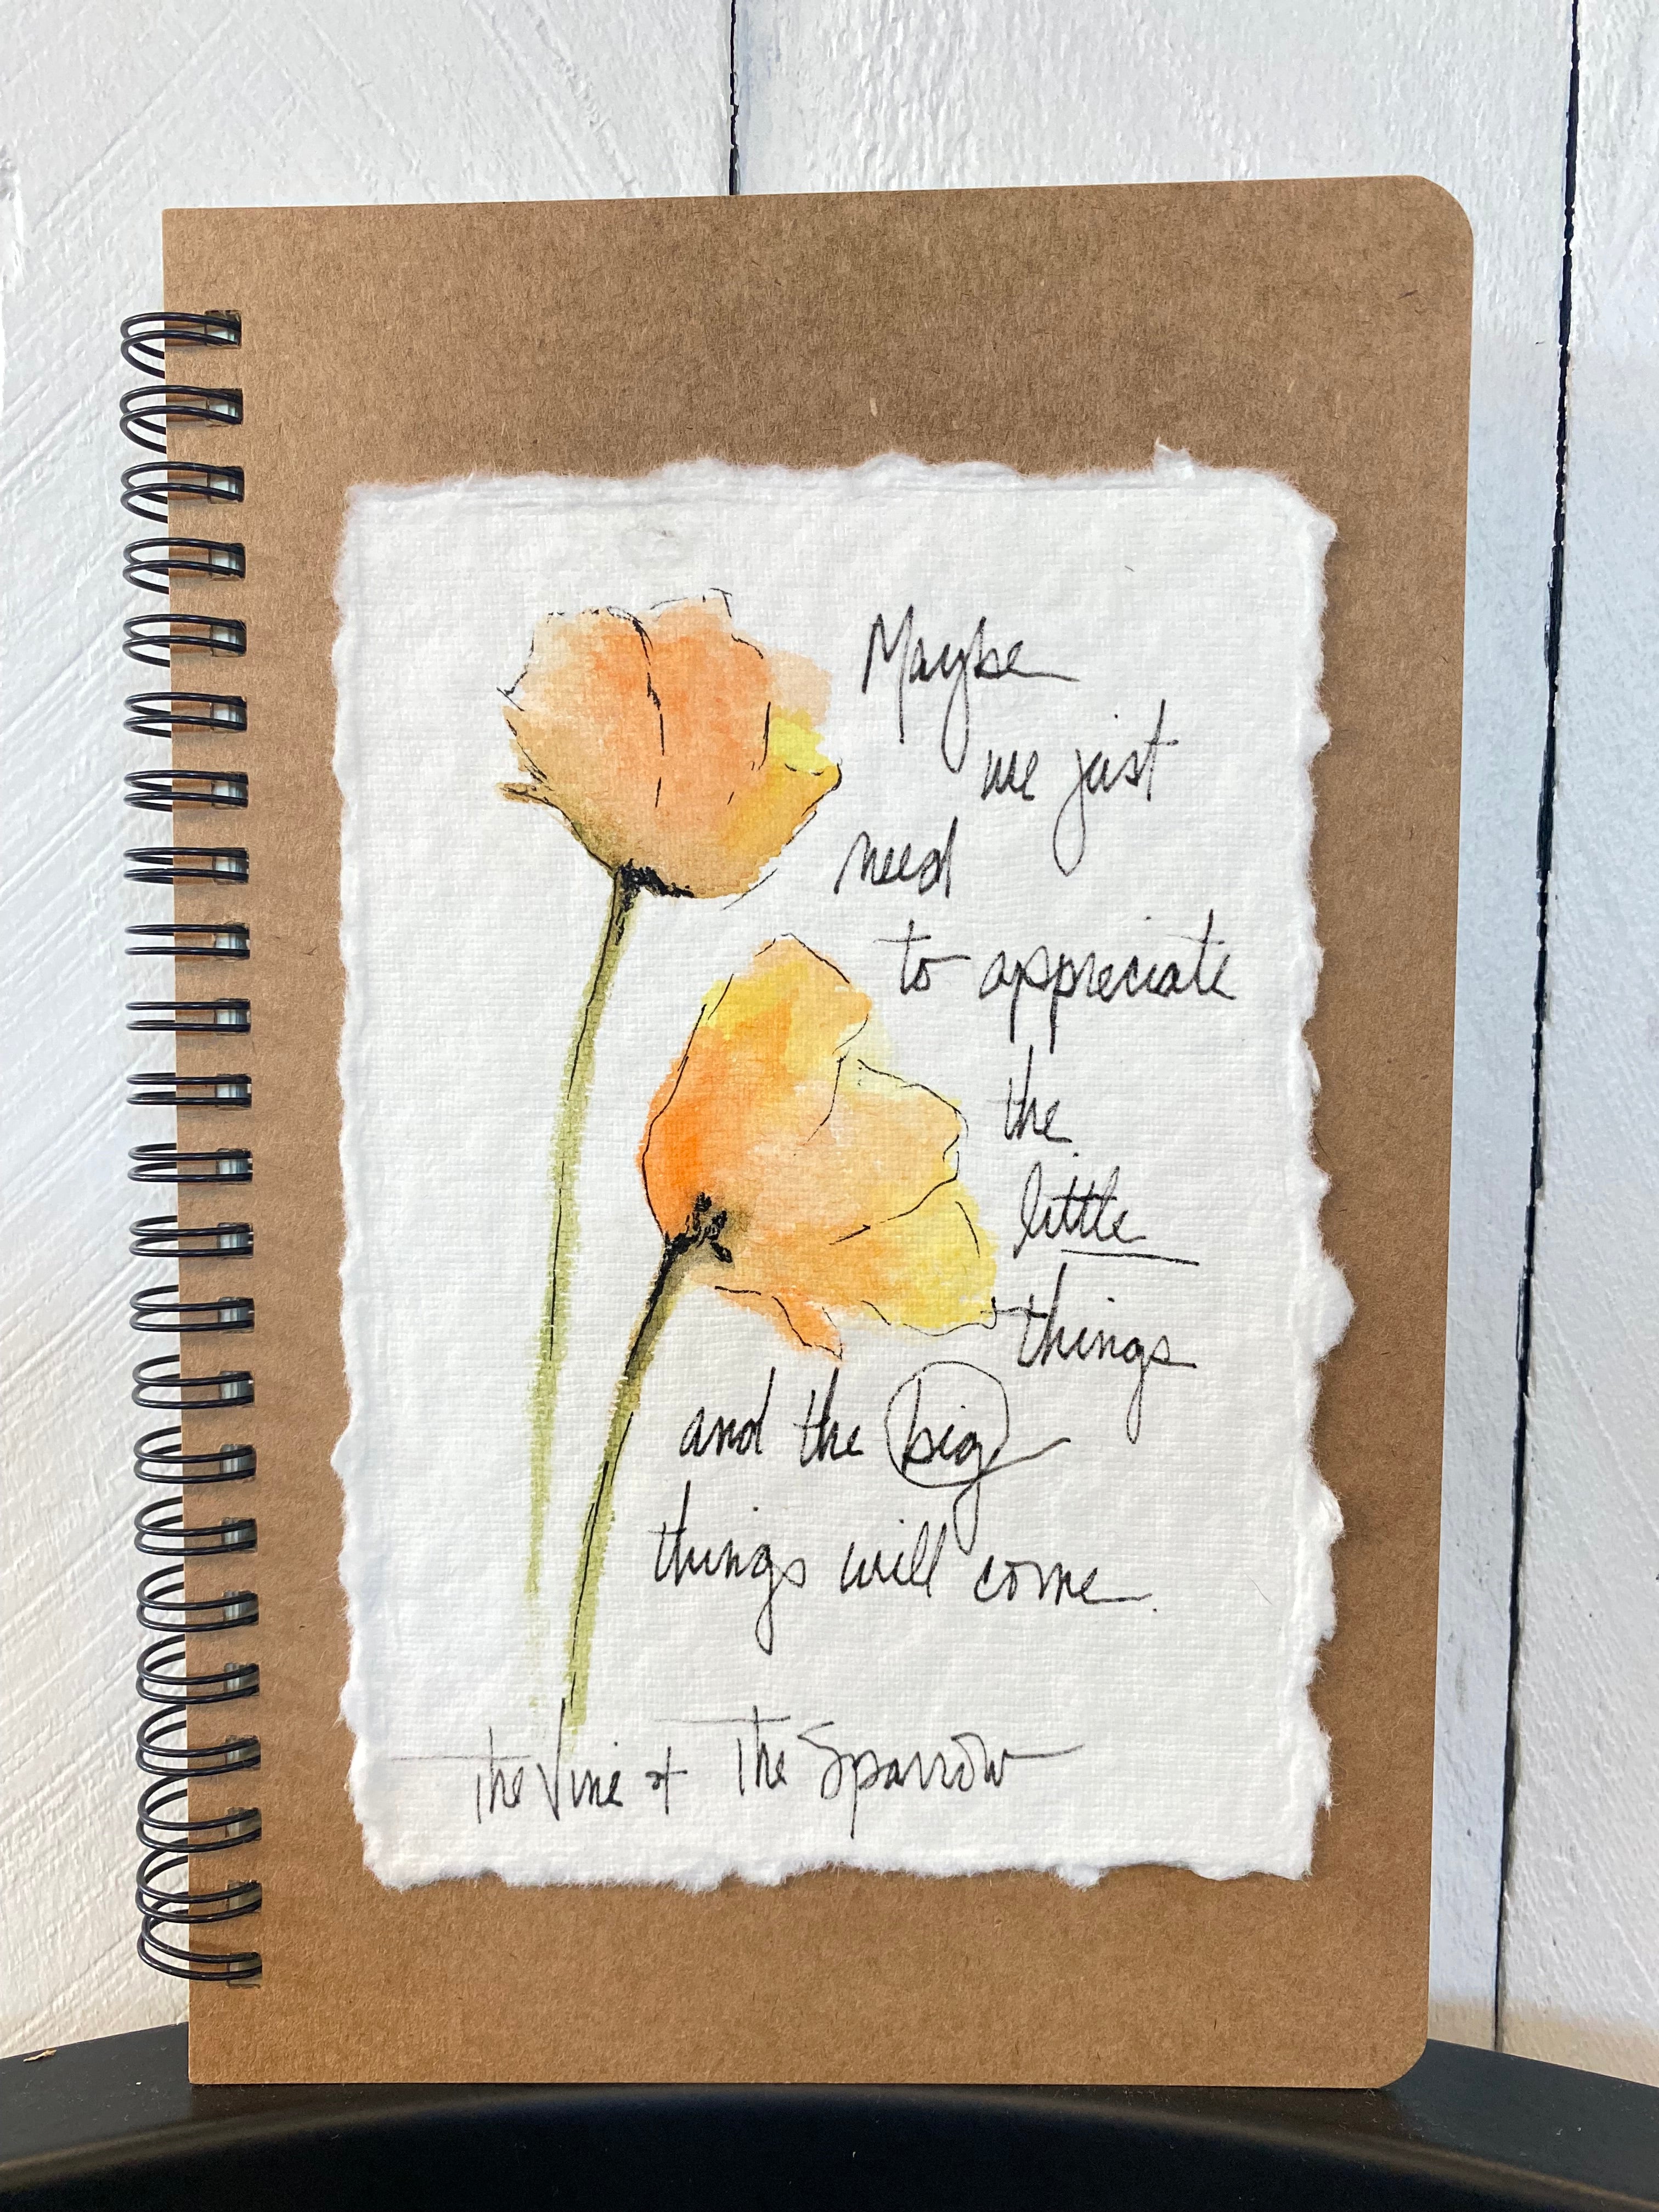 Maybe
we just
need
to appreciate
the
little
things
and the big
things will come.
The Vine + The Sparrow